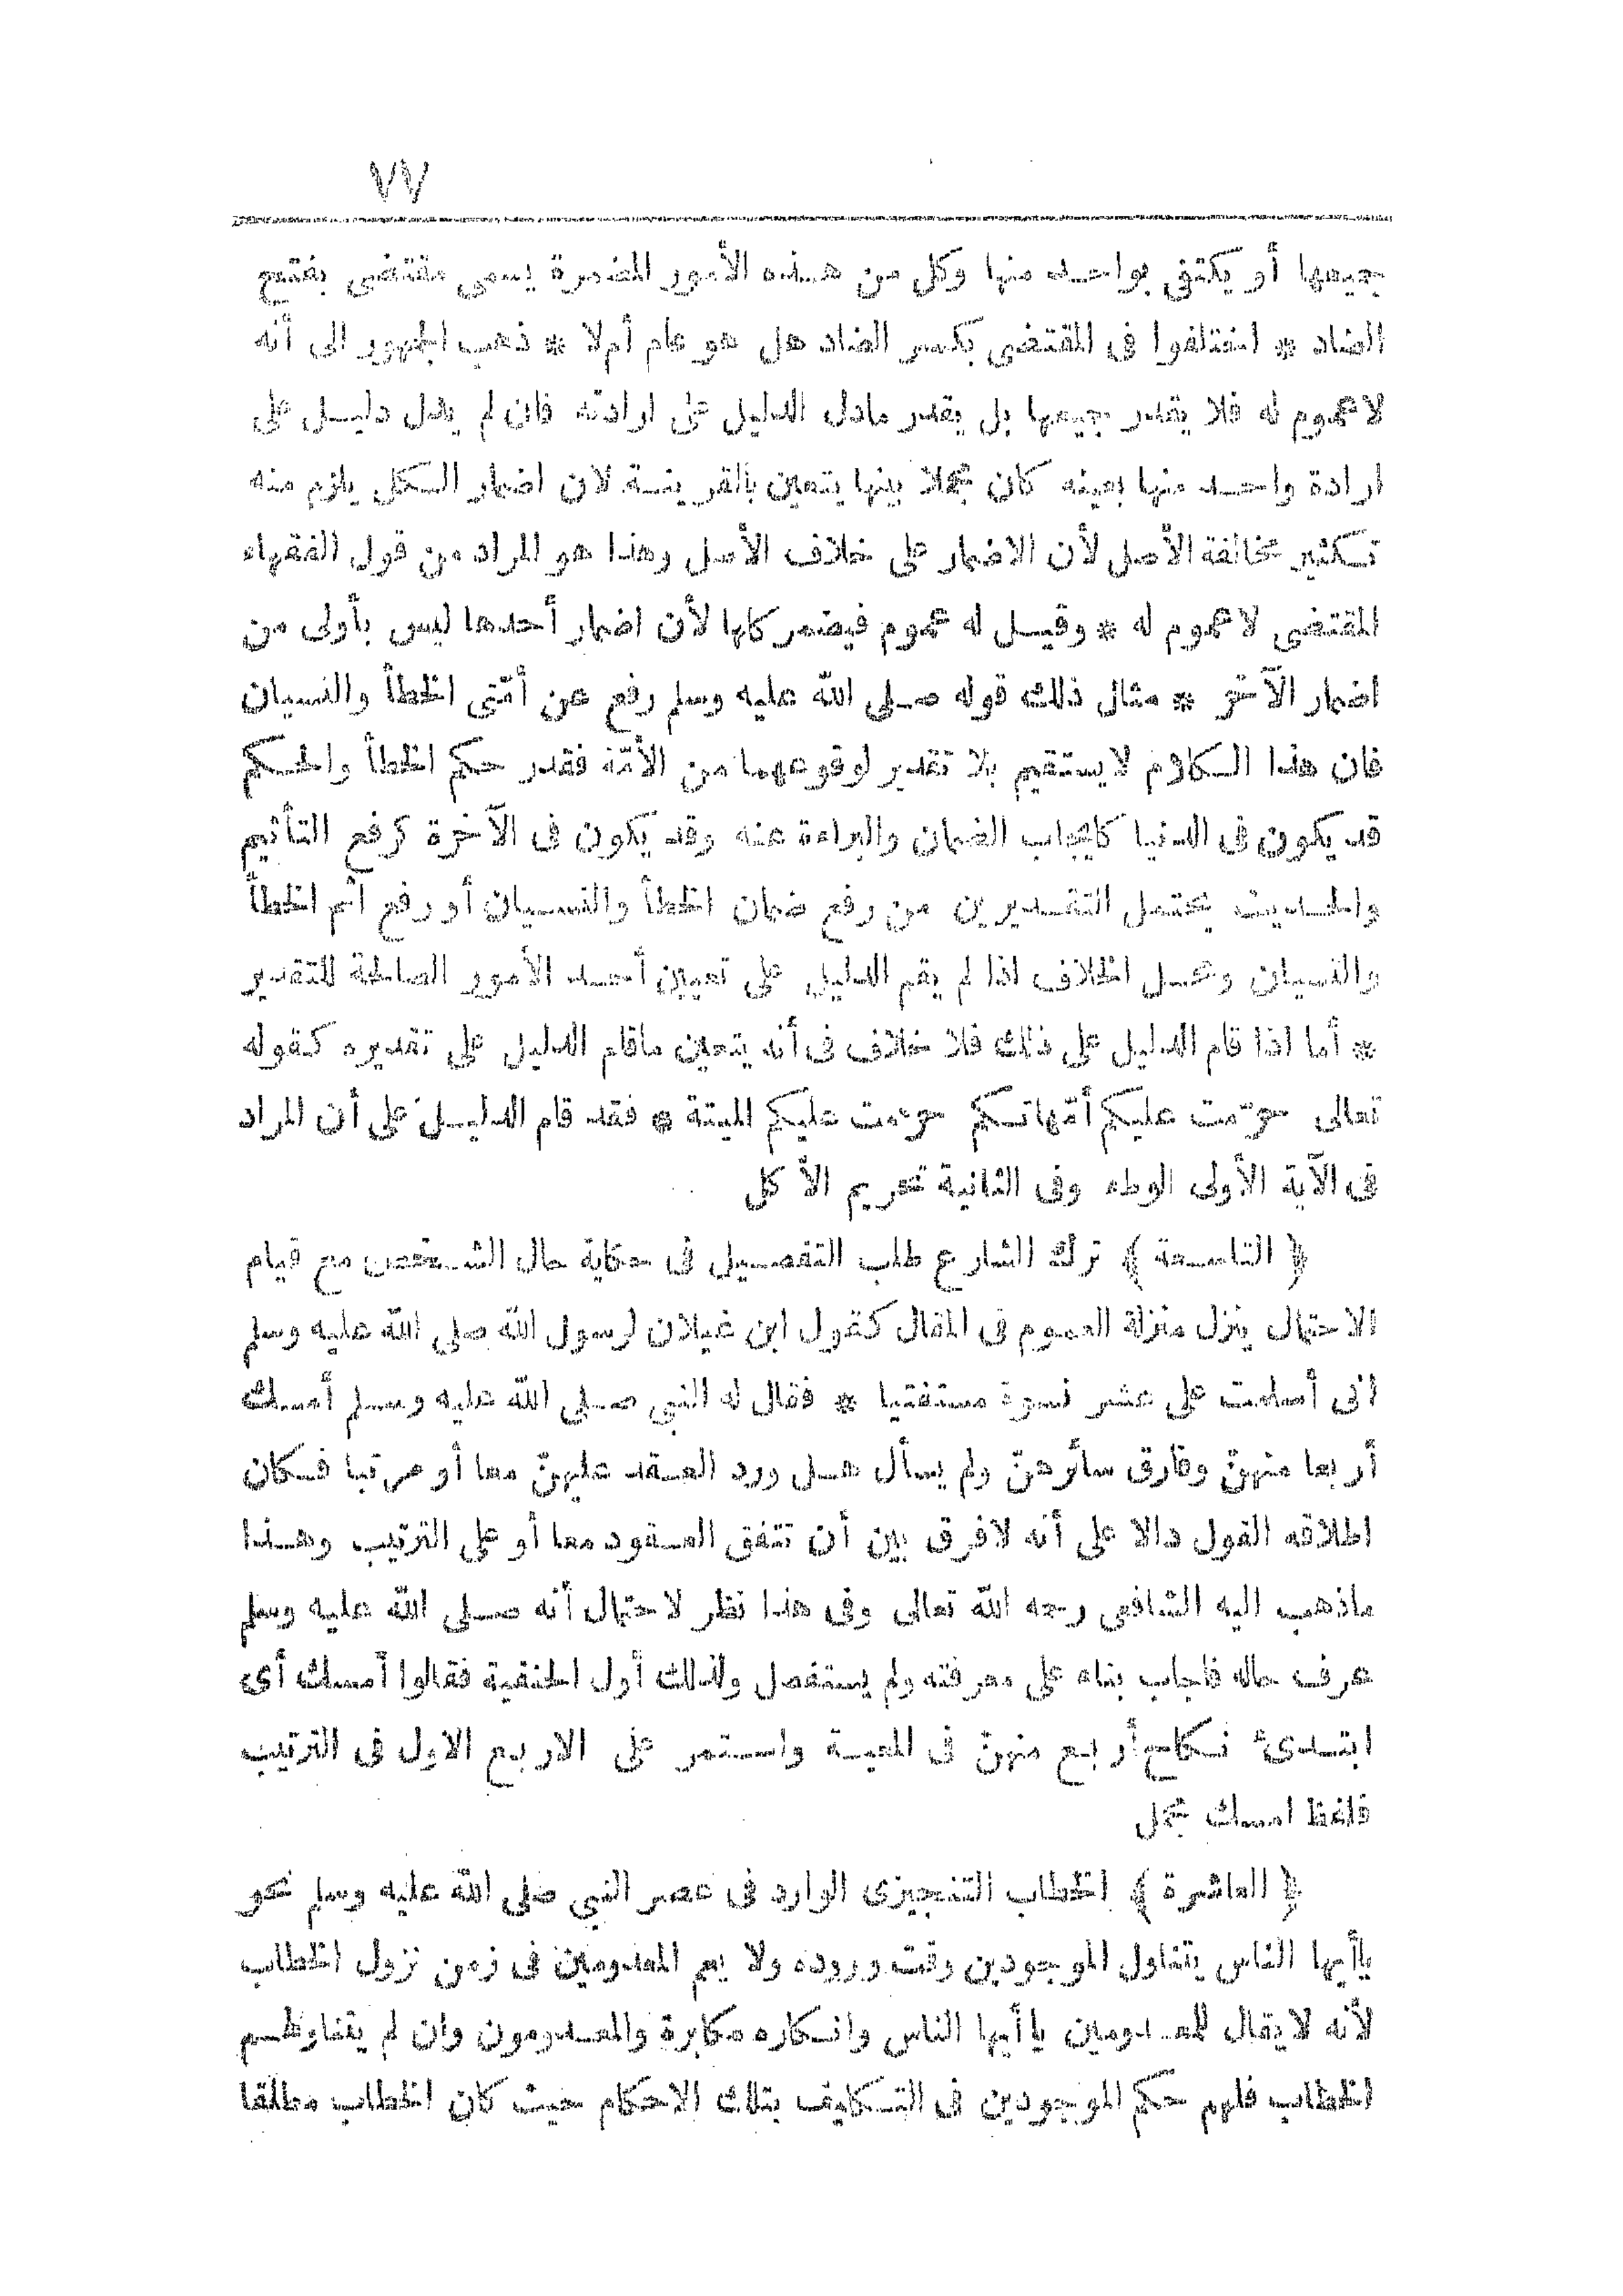 ٧٧
جميعها أو يكتفى بواحد منها وكل من هذه الأمور المضمرة يسمى مقتضى بفتح
الضاد * اختلفوا فى المقتضى بكسر الضاد هل هو عام أم لا * ذهب الجمهور الى أنه
لا عموم له فلا يقدر جميعها بل يقدر مادل الدليل على ارادته فان لم يدل دليل على
ارادة واحد منها بعينه كان مجملا بينها يتعين بالقرينة لان اضمار الكل يلزم منه
تكثير مخالفة الأصل لأن الاضمار على خلاف الأصل وهذا هو المراد من قول الفقهاء
المقتضى لا عموم له * وقيل له عموم فيضمر كلها لأن اضمار أحدها ليس بأولى من
اضمار الآخر * مثال ذلك قوله صلى الله عليه وسلم رفع عن أمّتى الخطأ والنسيان
فان هذا الكلام لا يستقيم بلا تقدير لوقوعهما من الأمّة فقدر حكم الخطأ والحكم
قد يكون فى الدنيا كايجاب الضمان والبراءة عنه وقد يكون فى الآخرة كرفع التأثيم
والحديث يحتمل التقديرين من رفع ضمان الخطأ والنسيان أو رفع اثم الخطأ
والنسيان ومحل الخلاف اذا لم يقم الدليل على تعيين أحد الأمور الصالحة للتقدير
* أما اذا قام الدليل على ذلك فلا خلاف فى أنه يتعين ماقام الدليل على تقديره كقوله
تعالى حرّمت عليكم أمّهاتكم حرّمت عليكم الميتة * فقد قام الدليل على أن المراد
فى الآية الأولى الوطء وفى الثانية تحريم الأكل
﴿ التاسعة ﴾ ترك الشارع طلب التفصيل فى حكاية حال الشخص مع قيام
الاحتمال ينزل منزلة العموم فى المقال كقول ابن غيلان لرسول الله صلى الله عليه وسلم
انى أسلمت على عشر نسوة مستفتيا * فقال له النبي صلى الله عليه وسلم أمسك
أربعا منهنّ وفارق سائرهنّ ولم يسأل هل ورد العقد عليهنّ معا أو مرتبا فكان
اطلاقه القول دالا على أنه لافرق بين أن تتفق العقود معا أو على الترتيب وهذا
ماذهب اليه الشافعى رحمه الله تعالى وفى هذا نظر لاحتمال أنه صلى الله عليه وسلم
عرف حاله فاجاب بناء على معرفته ولم يستفصل ولذلك أول الحنفية فقالوا أمسك أى
ابتدئ نكاح أربع منهنّ فى المعية واستمر على الاربع الاول فى الترتيب
فلفظ امسك مجمل
﴿ العاشرة ﴾ الخطاب التنجيزى الوارد فى عصر النبي صلى الله عليه وسلم نحو
ياأيها الناس يتناول الموجودين وقت وروده ولا يعم المعدومين فى زمن نزول الخطاب
لأنه لا يقال للمعدومين ياأيها الناس وانكاره مكابرة والمعدومون وان لم يتناولهم
الخطاب فلهم حكم الموجودين فى التكليف بتلك الاحكام حيث كان الخطاب مطلقا